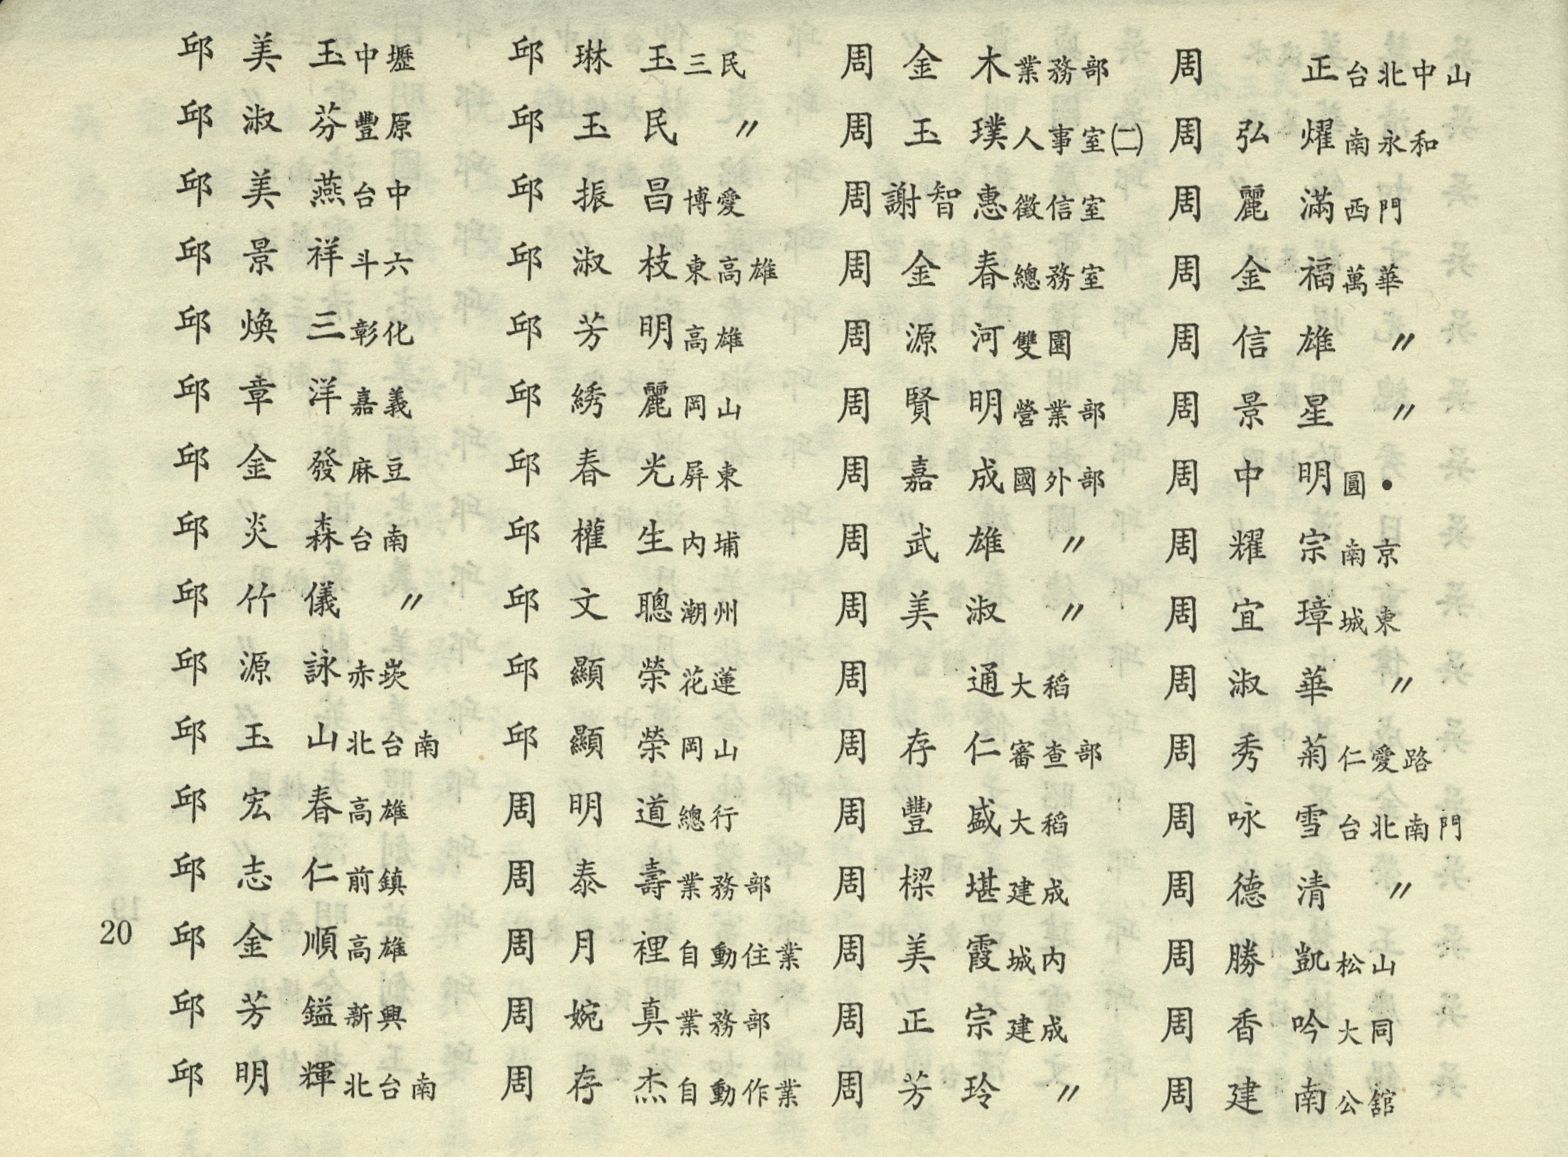 邱美玉中壢
邱淑芬豐原
邱美燕台中
邱景祥斗六
邱煥三彰化
邱章洋嘉義
邱金發麻豆
邱炎森台南
邱竹儀〃
邱源詠赤崁
邱玉山北台南
邱宏春高雄
邱志仁前鎮
邱金順高雄
邱芳鎰新興
邱明輝北台南
邱琳玉三民
邱玉民〃
邱振昌博愛
邱淑枝東高雄
邱芳明高雄
邱綉麗岡山
邱春光屏東
邱權生內埔
邱文聰潮州
邱顯榮花蓮
邱顯榮岡山
周明道總行
周泰壽業務部
周月裡自動住業
周婉真業務部
周存杰自動作業
周金木業務部
周玉璞人事室㈡
周謝智惠徵信室
周金春總務室
周源河雙園
周賢明營業部
周嘉成國外部
周武雄〃
周美淑〃
周通大稻
周存仁審查部
周豐盛大稻
周樑堪建成
周美霞城內
周正宗建成
周芳玲〃
周正台北中山
周弘燿南永和
周麗滿西門
周金福萬華
周信雄〃
周景星〃
周中明圓•
周耀宗南京
周宜璋城東
周淑華〃
周秀菊仁愛路
周咏雪台北南門
周德清〃
周勝凱松山
周香吟大同
周建南公舘
20